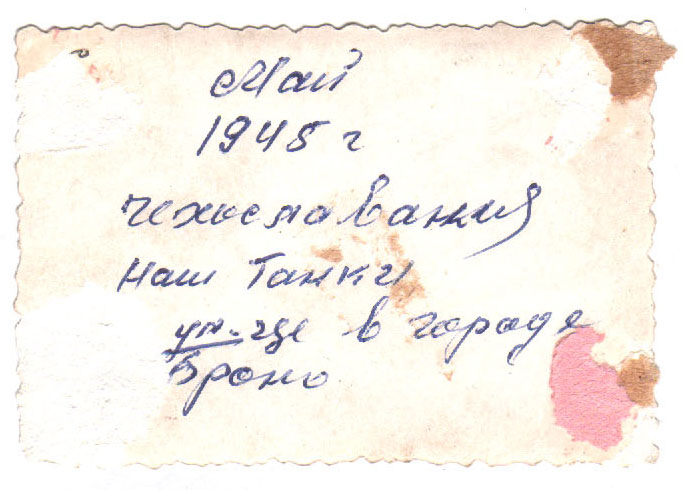 Май
1945 г
Чехословакия
Наш Танки
ул-це в городе
Броно